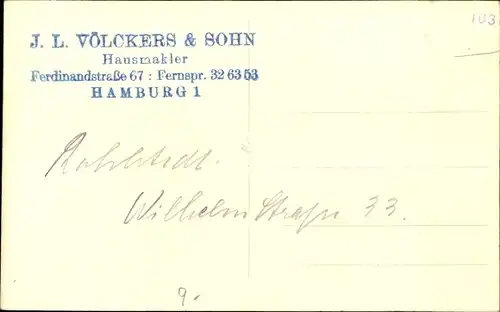 103
J. L. VÖLCKERS & SOHN
Hausmakler
Ferdinandstraße 67 : Fernspr. 32 63 53
HAMBURG 1
Rahlstedt.
Wilhelmstraße 33.
9.